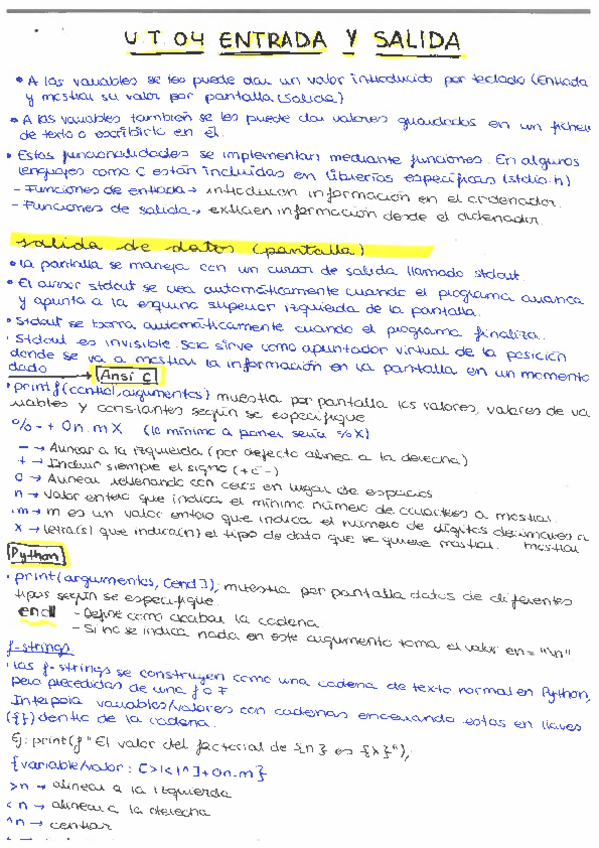 U.T 04 ENTRADA Y SALIDA
• A las variables se les puede dar un valor introducido por teclado (Entrada
y mostrar su valor por pantalla (Salida)
• A las variables también se les puede dar valores guardados en un ficher
de texto o escribirlo en él.
• Estas funcionalidades se implementan mediante funciones. En algunos
lenguajes como C están incluidas en librerías específicas (stdio.h)
- Funciones de entrada → introducen información en el ordenador.
- Funciones de salida → extraen información desde el ordenador.
salida de datos (pantalla)
• La pantalla se maneja con un cursor de salida llamado stdout.
• El cursor stdout se crea automáticamente cuando el programa arranca
y apunta a la esquina superior izquierda de la pantalla.
• Stdout se borra automáticamente cuando el programa finaliza.
· Stdout es invisible. Solo sirve como apuntador virtual de la posición
donde se va a mostrar la información en la pantalla en un momento
dado → Ansi C
• printf(control, argumentos) muestra por pantalla los valores, valores de va
riables y constantes según se especifique
% - + 0n.mX (lo mínimo a poner sería %X)
- → Alinear a la izquierda (por defecto alinea a la derecha)
+ → Incluir siempre el signo (+ ó -)
0 → Alinear rellenando con ceros en lugar de espacios
n → Valor entero que indica el mínimo número de caracteres a mostrar.
.m → m es un valor entero que indica el número de dígitos decimales a
mostrar
X → letra(s) que indica(n) el tipo de dato que se quiere mostrar.
Python
• print(argumentos, [end]); muestra por pantalla datos de diferentes
tipos según se especifique.
end - Define como acabar la cadena.
- Si no se indica nada en este argumento toma el valor en = "\n"
f-strings
• Las f-strings se construyen como una cadena de texto normal en Python,
pero precedidas de una f o F
Interpola variables/valores con cadenas encerrando estas en llaves
({}) dentro de la cadena.
Ej: print(f "El valor del factorial de {n} es {x}");
{variable/valor : [>|<|^]+0n.m}
>n → alinear a la izquierda
<n → alinear a la derecha
^n → centrar